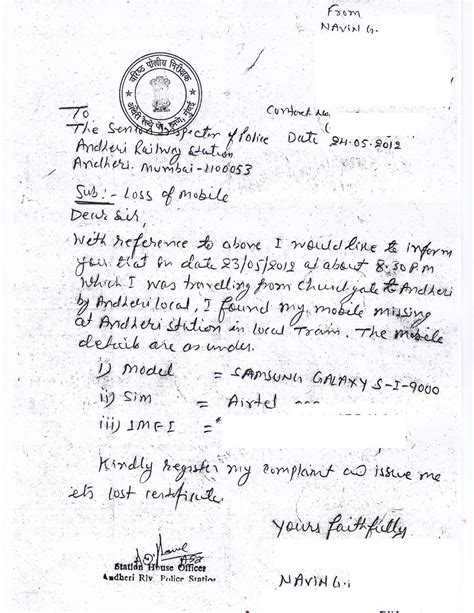 From
NAVIN G.
वरिष्ठ पोलीस निरीक्षक
अंधेरी रेल्वे पो. ठाणे, मुंबई
Contact No.
To
The Senior Inspector of Police Date 24.05.2012
Andheri Railway Station
Andheri. Mumbai-400053
Sub:- Loss of Mobile
Dear Sir,
With reference to above I would like to inform
you that on date 23/05/2012 at about 8.30 P.M
which I was travelling from Churchgate to Andheri
by Andheri local, I found my mobile missing
at Andheri Station in local Train. The mobile
details are as under.
i) Model = SAMSUNG GALAXY S-I-9000
ii) Sim = Airtel
iii) IMEI =
Kindly register my complaint and issue me
its lost certificate.
Yours faithfully
Station House Officer
Andheri Rly. Police Station
NAVIN G.